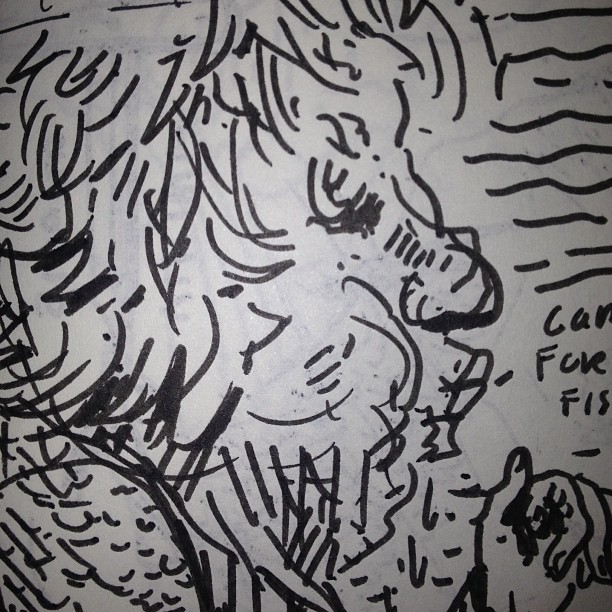 Can
For
Fis